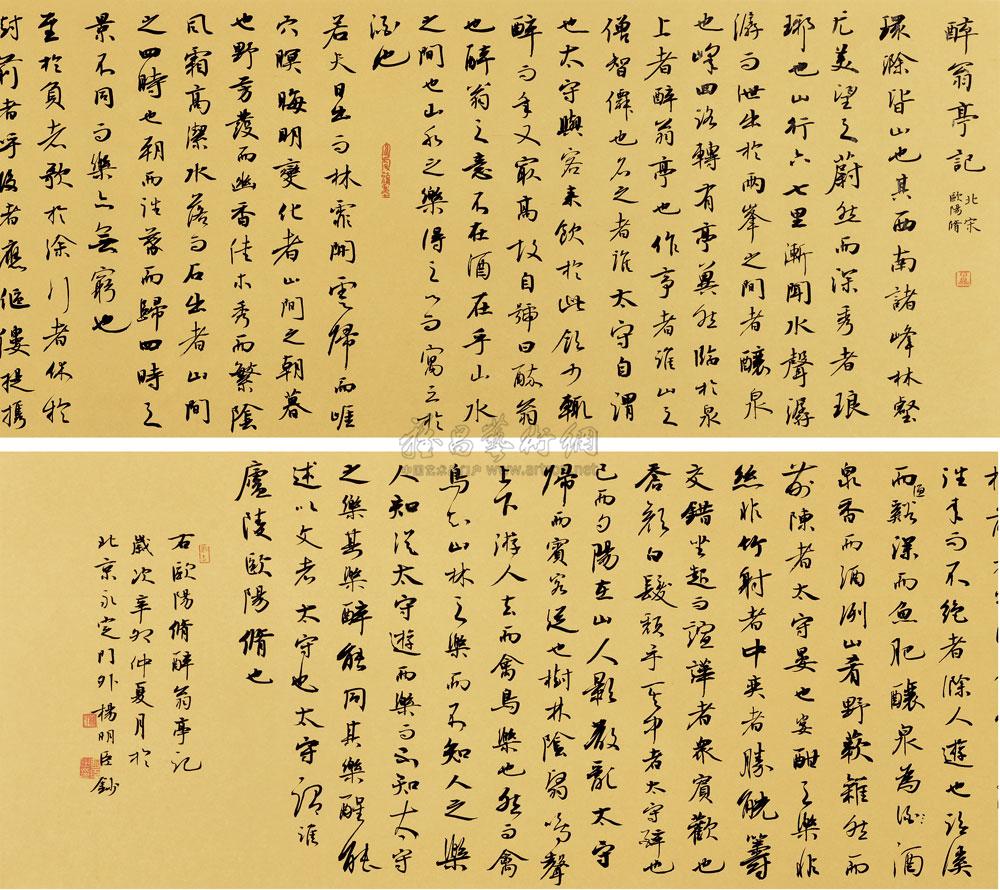 醉翁亭記
北宋
歐陽脩
環滁皆山也其西南諸峰林壑
尤美望之蔚然而深秀者琅
琊也山行六七里漸聞水聲潺
潺而泄出於兩峯之間者釀泉
也峰回路轉有亭翼然臨於泉
上者醉翁亭也作亭者誰山之
僧智僊也名之者誰太守自謂
也太守與客來飲於此飲少輒
醉而年又最高故自號曰醉翁
也醉翁之意不在酒在乎山水
之間也山水之樂得之心而寓之於
酒也
若夫日出而林霏開雲歸而巖
穴暝晦明變化者山間之朝暮
也野芳發而幽香佳木秀而繁陰
風霜高潔水落而石出者山間
之四時也朝而往暮而歸四時之
景不同而樂亦無窮也
至於負者歌於塗行者休於
樹前者呼後者應傴僂提攜
往來而不絕者滁人遊也臨溪
而漁谿深而魚肥釀泉為酒
泉香而酒洌山肴野蔌雜然而
前陳者太守宴也宴酣之樂非
絲非竹射者中奕者勝觥籌
交錯坐起而諠譁者衆賓歡也
蒼顏白髮頹乎其中者太守醉也
已而夕陽在山人影散亂太守
歸而賓客從也樹林陰翳鳴聲
上下游人去而禽鳥樂也然而禽
鳥知山林之樂而不知人之樂
人知從太守遊而樂而不知太守
之樂其樂醉能同其樂醒能
述以文者太守也太守謂誰
廬陵歐陽脩也
右歐陽脩醉翁亭記
歲次辛卯仲夏月於
北京永定門外楊明臣鈔